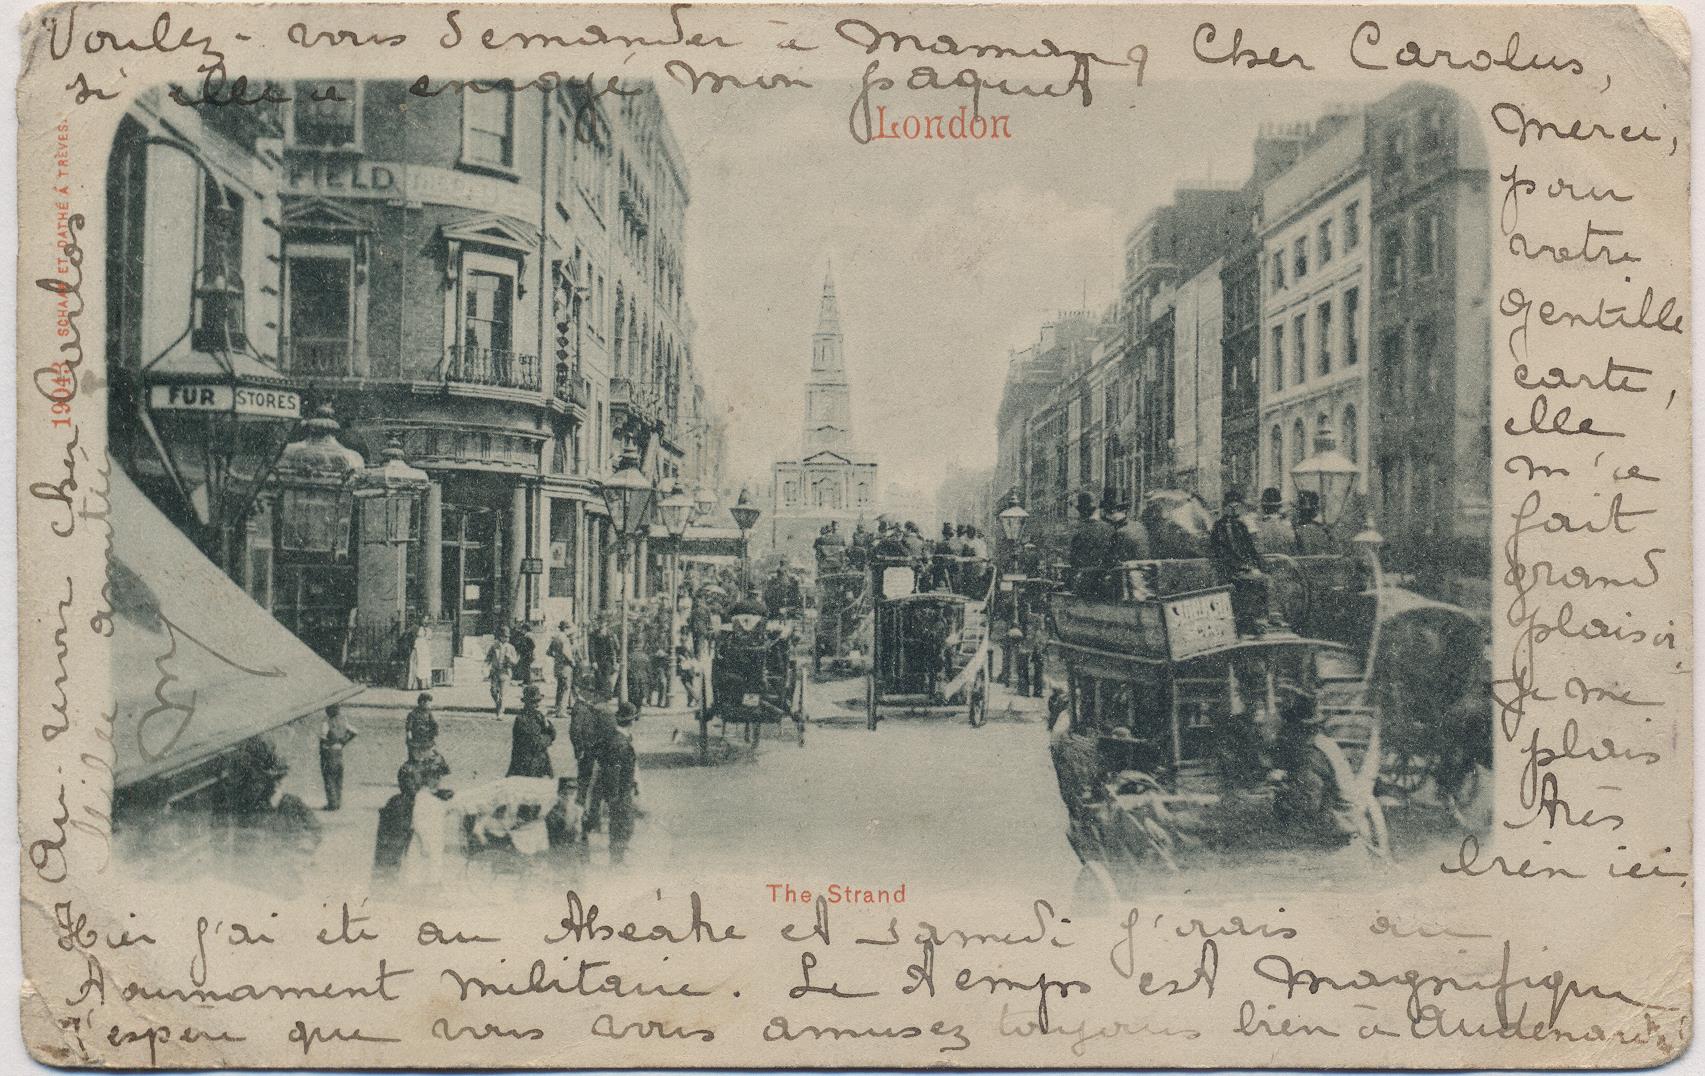 Voulez-vous demander à maman, Cher Carolus,
si elle a envoyé mon paquet
London
Merci,
pour
votre
gentille
carte,
elle
m'a
fait
grand
plaisir.
Je me
plais
très
bien ici.
FIELD
FUR STORES
The Strand
Hier j'ai été au théâtre et samedi j'irais au
tournament militaire. Le temps est magnifique
j'espère que vous vous amusez toujours bien à Audenarde
Au-revoir cher Carlos
Mille amitiés
19043 SCHAAR ET DATHÉ À TRÈVES.